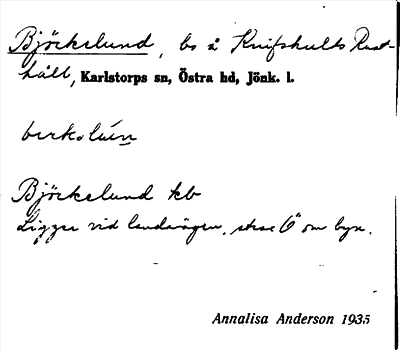 Björkelund, bs å Knifshults Rust-
håll, Karlstorps sn, Östra hd, Jönk. l.
Björkelund kb
Ligger vid landsvägen, strax Ö om byn.
Annalisa Anderson 1935